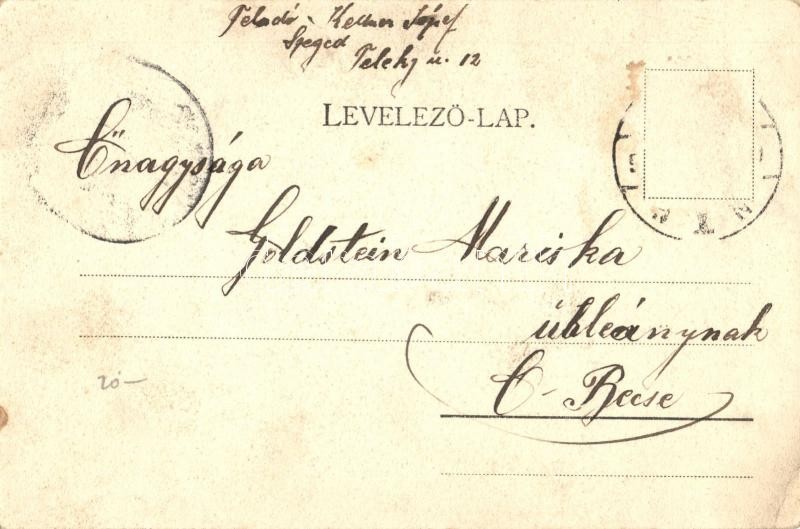 Feladó - Kellner József
Szeged
Teleky u. 12
LEVELEZŐ-LAP.
Őnagysága
Goldstein Mariska
úrleánynak
Ó-Becse
20-